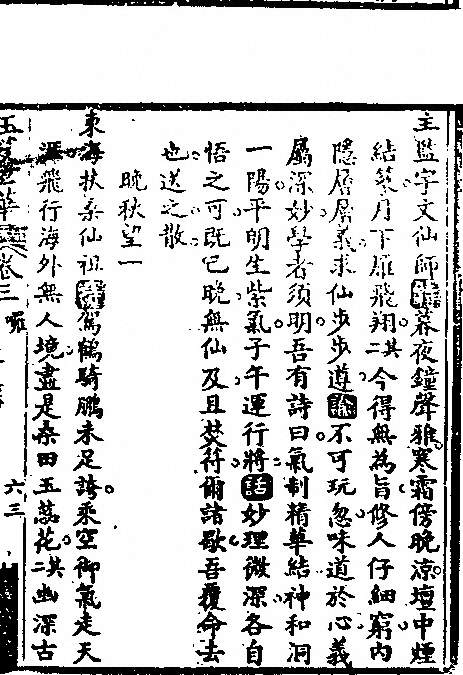 主監宇文仙師詩暮夜鐘聲雅寒霜傍晚涼壇中煙
結篆月下雁飛翔其二今得無為旨修人仔細窮內
隱層層義求仙步步遵諭不可玩忽味道於心義
屬深妙學者須明吾有詩曰氣制精華結神和洞
一陽平明生紫氣子午運行將話妙理微深各自
悟之可既已晚無仙及且焚符爾諸歇吾覆命去
也送之散
晚秋望一
東海扶桑仙祖詩駕鶴騎鵬未足誇乘空御氣走天
涯飛行海外無人境盡是桑田五蕊花其二幽深古
卷三
六三